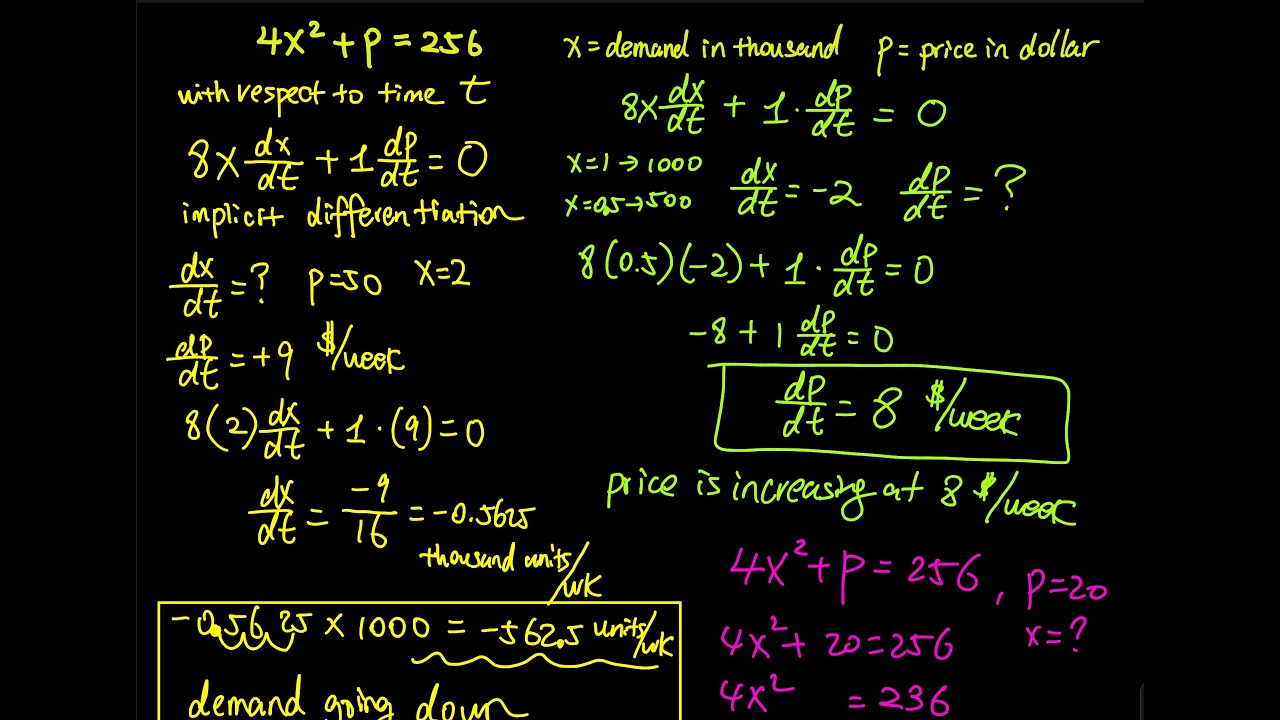 4x² + p = 256
with respect to time t
8x dx/dt + 1 dp/dt = 0
implicit differentiation
dx/dt = ? p=50 x=2
dp/dt = +9 $/week
8(2) dx/dt + 1·(9) = 0
dx/dt = -9/16 = -0.5625
thousand units/wk
-0.5625 x 1000 = -562.5 units/wk
demand going down
x = demand in thousand p = price in dollar
8x dx/dt + 1· dp/dt = 0
x=1 → 1000
x=0.5 → 500
dx/dt = -2 dp/dt = ?
8(0.5)(-2) + 1· dp/dt = 0
-8 + 1 dp/dt = 0
dp/dt = 8 $/week
price is increasing at 8 $/week
4x² + p = 256, p=20
x=?
4x² + 20 = 256
4x² = 236